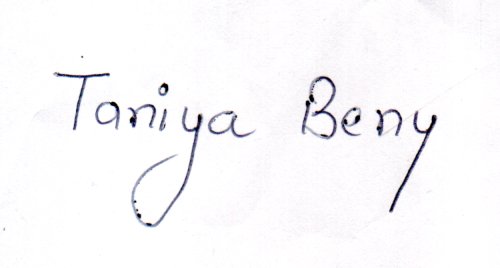 Taniya Beny